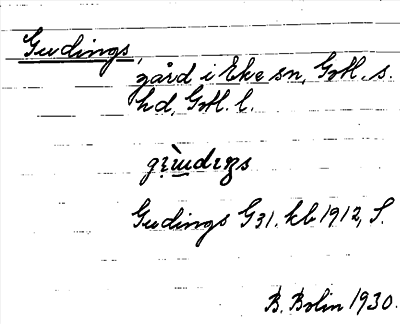 Gudings,
gård i Eke sn, Gotl. s.
hd, Gotl. l.
Gudings G 31. kb 1912, S.
B. Bolin 1930.